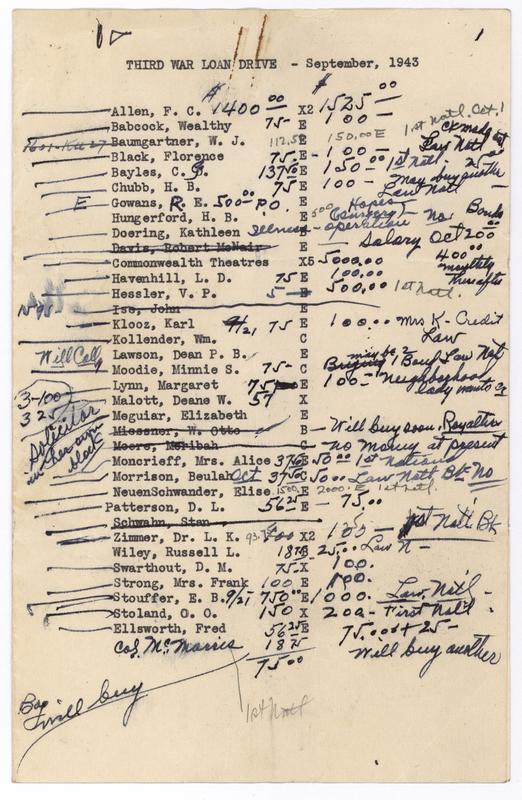 THIRD WAR LOAN DRIVE - September, 1943
$ $
Allen, F. C. 1400.00 X2 1525.00
Babcock, Wealthy 75- E 100- 1st Natl. Oct. 1
Baumgartner, W. J. 112.50 E 150.00 E
Black, Florence 75- E - 100- Law Natl
Bayles, C. G. 137.50 E 150.00 1st Natl. 25-
Chubb, H. B. 75 E 100- may buy another Law Natl
E Gowans, R. E. 500.00 P.O. E
Hungerford, H. B. E 500 Hopes
Doering, Kathleen Illness - operation - No Bonds
Davis, Robert McNair E - Salary Oct 200.00
Commonwealth Theatres X5 5000.00 400.00
Havenhill, L. D. 75 E 100.00 monthly thereafter
Hessler, V. P. 5- E 500.00 1st Natl.
Ise, John E
Klooz, Karl 9/21 75 E 100.00 Mrs K- Credit
Kollender, Wm. C Law
Will Call Lawson, Dean P. B. E maybe 2
Moodie, Minnie S. 75- C Bond Law Nat
Lynn, Margaret 75 E 100- Neighborhood lady wants
3-100 Malott, Deane W. 57 X
3 25 Meguiar, Elizabeth E
Solicitor in her own block
Miessner, W. Otto B - Will buy soon. Royalties
Moore, Meribah C - no money at present
Moncrieff, Mrs. Alice 37.50 E 50.00 1st National
Morrison, Beulah Oct 37.50 C 50.00 Law Natl. Bk. No
NeuenSchwander, Elise 1500 E 2000. E 1st natl.
Patterson, D. L. 56.25 E - 75.00
Schwahn, Stan
Zimmer, Dr. L. K. X2 100- 1st Nat'l Bk
Wiley, Russell L. 18.75 E 25.00 Law N-
Swarthout, D. M. 75- X 100.
Strong, Mrs. Frank 100 E 100.
Stouffer, E. B. 9/21 750.00 E 1000. Law. Nat'l -
Stoland, O. O. 150 X 200- First Nat'l.
Ellsworth, Fred 56.25 E 75.00 + 25-
Col. McMorris 18.75 Will buy another
75.00
will buy
1st Natl